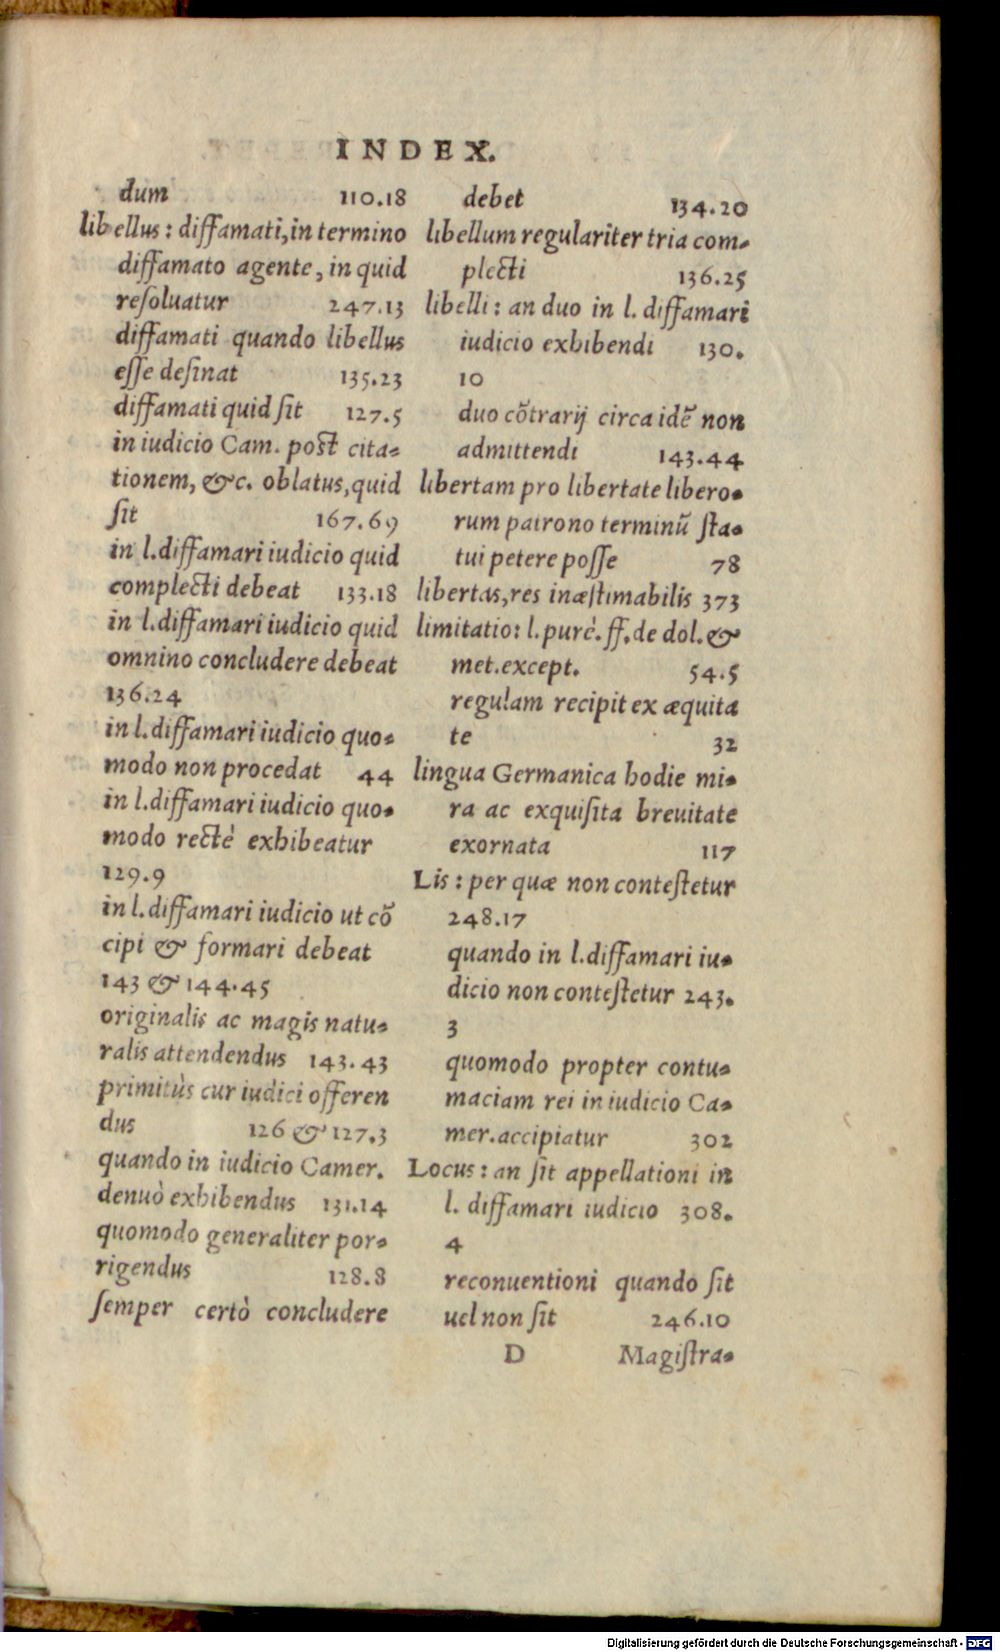 INDEX.
dum 110.18
libellus: diffamati, in termino
diffamato agente, in quid
reſoluatur 247.13
diffamati quando libellus
eſſe deſinat 135.23
diffamati quid ſit 127.5
in iudicio Cam. poſt cita-
tionem, &c. oblatus, quid
ſit 167.69
in l. diffamari iudicio quid
complecti debeat 133.18
in l. diffamari iudicio quid
omnino concludere debeat
136.24
in l. diffamari iudicio quo-
modo non procedat 44
in l. diffamari iudicio quo-
modo rectè exhibeatur
129.9
in l. diffamari iudicio ut cō
cipi & formari debeat
143 & 144.45
originalis ac magis natu-
ralis attendendus 143.43
primitùs cur iudici offeren
dus 126 & 127.3
quando in iudicio Camer.
denuò exhibendus 131.14
quomodo generaliter por-
rigendus 128.8
ſemper certò concludere
debet 134.20
libellum regulariter tria com-
plecti 136.25
libelli: an duo in l. diffamari
iudicio exhibendi 130.
10
duo cōtrarij circa idē non
admittendi 143.44
libertam pro libertate libero-
rum patrono terminū ſta-
tui petere poſſe 78
libertas, res inæſtimabilis 373
limitatio: l. purè. ff. de dol. &
met. except. 54.5
regulam recipit ex æquita
te 32
lingua Germanica hodie mi-
ra ac exquiſita breuitate
exornata 117
Lis: per quæ non conteſtetur
248.17
quando in l. diffamari iu-
dicio non conteſtetur 243.
3
quomodo propter contu-
maciam rei in iudicio Ca-
mer. accipiatur 302
Locus: an ſit appellationi in
l. diffamari iudicio 308.
4
reconuentioni quando ſit
uel non ſit 246.10
D Magiſtra-
Digitalisierung gefördert durch die Deutsche Forschungsgemeinschaft - DFG